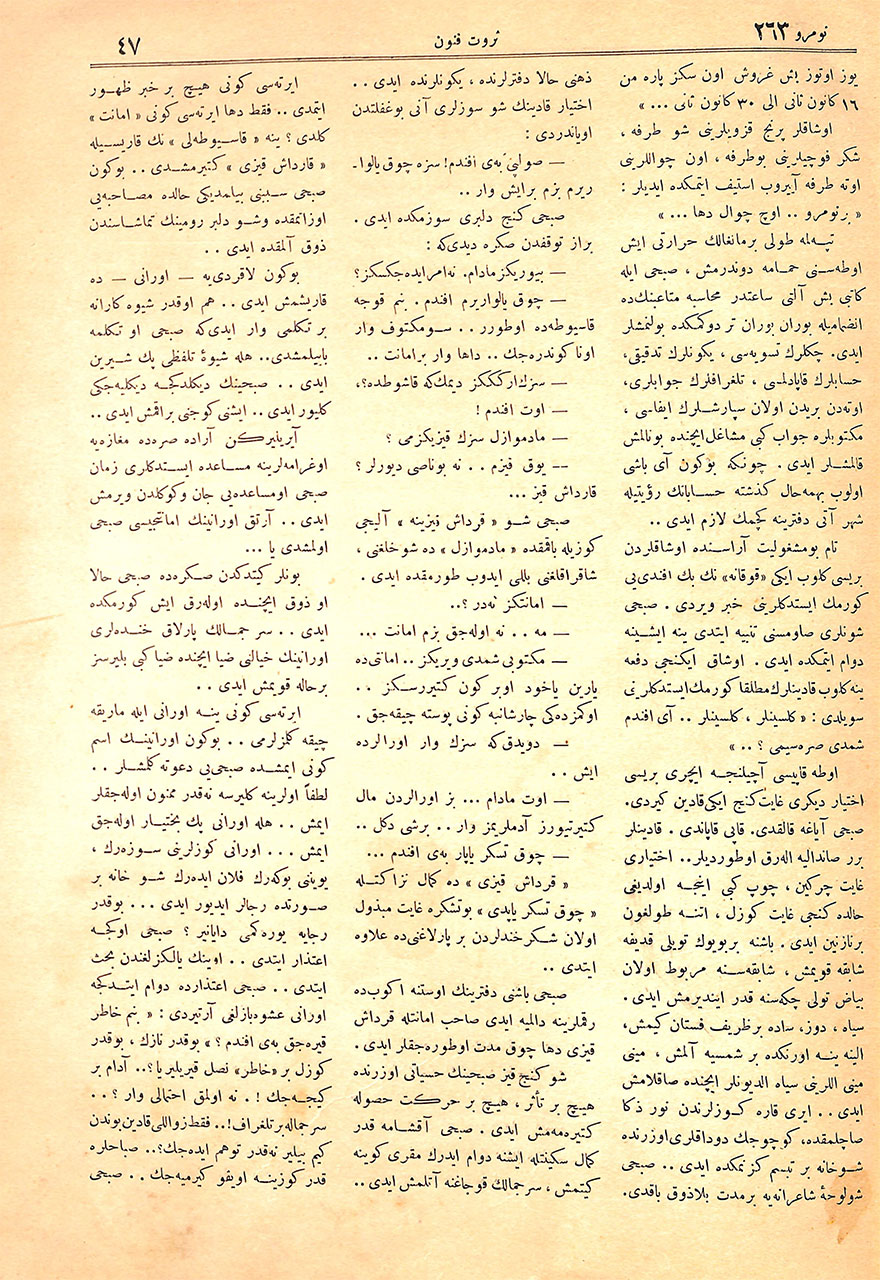 نومرو ٢٦٣
ثروت فنون
٤٧
یوز اوتوز بش غروش اون سكز پاره من
١٦ كانون ثانی الی ٣٠ كانون ثانی ... »
اوشاقلر پرنج قزویلرینی شو طرفه ،
شكر فوچیلرینی بوطرفه ، اون چواللرینی
اوته طرفه آییروب استیف ایتمكده ایدیلر :
« برنومرو .. اوچ چوال دها ... »
تپه‌لمه طولی برمانغالك حرارتی ایش
اوطه‌سنی حمامه دوندرمش ، صبحی ایله
كاتبی بش آلتی ساعتدر محاسبه متاعبنك‌ده
انضمامیله بوران بوران تر دوكمكده بولنمشلر
ایدی. چكلرك تسویه‌سی ، یكونلرك تدقیقی،
حسابلرك قاپادلمسی ، تلغرافلرك جوابلری،
اوته‌دن بریدن اولان سپارشلرك ایفاسی ،
مكتوبلره جواب كبی مشاغل ایچنده بونالمش
قالمشلر ایدی . چونكه بوكون آی باشی
اولوب بهمه‌حال كذشته حسابانك رؤیتیله
شهر آتی دفترینه كچمك لازم ایدی ..
تام بومشغولیت آراسنده اوشاقلردن
بریسی كلوب ایكی «قوقانه» نك بك افندی‌یی
كورمك ایستدكلرینی خبر ویردی . صبحی
شونلری صاومسنی تنبیه ایتدی ینه ایشینه
دوام ایتمكده ایدی . اوشاق ایكنجی دفعه
ینه كلوب قادینلرك مطلقا كورمك ایستدكلرینی
سویلدی : « كلسینلر ، كلسینلر .. آی افندم
شمدی صره‌سیمی ؟ .. »
اوطه قاپیسی آچیلنجه ایچری بریسی
اختیار دیكری غایت كنج ایكی قادین كیردی.
صبحی آیاغه قالقدی. قاپی قاپاندی . قادینلر
برر صاندالیه اله‌رق اوطوردیلر.. اختیاری
غایت چركین ، چوپ كبی اینجه اولدیغی
حالده كنجی غایت كوزل ، اتنه طولغون
برنازنین ایدی . باشنه بربویوك تویلی قدیفه
شابقه قویمش ، شابقه‌سنه مربوط اولان
بیاض تولی چكه‌سنه قدر ایندیرمش ایدی .
سیاه ، دوز، ساده برظریف فستان كیمش،
الینه ینه اورنكده بر شمسیه آلمش ، مینی
مینی اللرینی سیاه الدیونلر ایچنده صاقلامش
ایدی .. ایری قاره كوزلرندن نور ذكا
صاچلمقده، كوچوجك دوداقلری اوزرنده
شوخانه بر تبسم كزنمكده ایدی .. صبحی
شولوحهٔ شاعرانه‌یه برمدت بلاذوق باقدی.
ذهنی حالا دفترلرنده ، یكونلرنده ایدی ..
اختیار قادینك شو سوزلری آنی بوغفلتدن
اویاندردی :
— صولپی به‌ی افندم! سزه چوق یالوا-
ریرم بزم برایش وار ..
صبحی كنج دلبری سوزمكده ایدی .
براز توقفدن صكره دیدی‌كه :
— بیوریكز مادام. نه‌امرایده‌جكسكز؟
— چوق یالواریرم افندم . بنم قوجه
قاسیوطه‌ده اوطورر .. سومكتوف وار
اونا كوندره‌جك .. داها وار برامانت ..
— سزك‌اركككز دیمك‌كه قاشوطده؟،
— اوت افندم !
— مادموازل سزك قیزیكزمی ؟
-- یوق قیزم .. نه بوناصی دیورلر ؟
قارداش قیز ...
صبحی شو « قرداش قیزینه » آلیجی
كوزیله باقمقده « مادموازل » ده شوخلغنی ،
شاقراقلغنی بللی ایدوب طورمقده ایدی .
— امانتكز نه‌در ؟..
— مه .. نه اوله‌جق بزم امانت ...
— مكتوبی شمدی ویریكز .. امانتی‌ده
یارین یاخود اوبر كون كتیررسكز ..
اوكمزده‌كی چارشانبه كونی پوسته چیقه‌جق .
— دویدق‌كه سزك وار اورالرده
ایش ..
— اوت مادام ... بز اورالردن مال
كتیرتیورز آدملریمز وار .. برشی دكل ..
— چوق تسكر یاپار به‌ی افندم ...
« قرداش قیزی » ده كمال نزاكتله
« چوق تسكر یاپدی » بوتشكره غایت مبذول
اولان شكرخندلردن بر پارلاغنی‌ده علاوه
ایتدی ..
صبحی باشنی دفترینك اوستنه اكوب‌ده
رقملرینه دالمیه ایدی صاحب امانتله قرداش
قیزی دها چوق مدت اوطوره‌جقلر ایدی.
شو كنج قیز صبحینك حسیاتی اوزرنده
هیچ بر تأثر ، هیچ بر حركت حصوله
كتیره‌مه‌مش ایدی . صبحی آقشامه قدر
كمال سكینتله ایشنه دوام ایدرك مقری كوینه
كیتمش ، سرجمالك قوجاغنه آتلمش ایدی ..
ایرته‌سی كونی هیچ بر خبر ظهور
ایتمدی .. فقط دها ایرته‌سی كونی « امانت »
كلدی ؟ ینه « قاسیوطه‌لی » نك قاریسیله
« قارداش قیزی » كتیرمشدی .. بوكون
صبحی سببنی بیلمدیكی حالده مصاحبه‌یی
اوزاتمقده وشو دلبر رومینك تماشاسندن
ذوق آلمقده ایدی ..
بوكون لاقردی‌یه — اورانی — ده
قاریشمش ایدی .. هم اوقدر شیوه كارانه
بر تكلمی وار ایدی‌كه صبحی او تكلمه
بایلمشدی.. هله شیوهٔ تلفظی پك شیرین
ایدی .. صبحینك دیكلدكجه دیكلیه‌جكی
كلیور ایدی .. ایشنی كوجنی براقمش ایدی ..
آیریلیركن آراده صره‌ده مغازه‌یه
اوغرامه‌لرینه مساعده ایستدكلری زمان
صبحی اومساعده‌یی جان وكوكلدن ویرمش
ایدی .. آرتق اورانینك امانتجیسی صبحی
اولمشدی یا ...
بونلر كیتدكدن صكره‌ده صبحی حالا
او ذوق ایچنده اوله‌رق ایش كورمكده
ایدی .. سرجمالك پارلاق خنده‌لری
اورانینك خیالنی ضیا ایچنده ضیا كبی بلیرسز
برحاله قویمش ایدی ..
ایرته‌سی كونی ینه اورانی ایله ماریقه
چیقه كلمزلرمی .. بوكون اورانینك اسم
كونی ایمشده صبحی‌یی دعوته كلمشلر ..
لطفاً اولرینه كلیرسه نه‌قدر ممنون اوله‌جقلر
ایمش .. هله اورانی پك بختیار اوله‌جق
ایمش ... اورانی كوزلرینی سوزه‌رك ،
بویننی بوكه‌رك فلان ایده‌رك شو خانه بر
صورتده رجالر ایدیور ایدی ... بوقدر
رجایه یوره‌كمی دایانیر ؟ صبحی اوكجه
اعتذار ایتدی .. اوینك یالكزلغندن بحث
ایتدی .. صبحی اعتذارده دوام ایتدكجه
اورانی عشوه‌بازلغی آرتیردی : « بنم خاطر
قیره‌جق به‌ی افندم ؟ » بوقدر نازك ، بوقدر
كوزل بر «خاطر» نصل قیریلیر یا؟.. آدام بر
كیجه‌جك ! . نه اولمق احتمالی وار ؟ ..
سرجماله برتلغراف!.. فقط زواللی قادین بوندن
كیم بیلیر نه‌قدر توهم ایده‌جك؟.. صباحلره
قدر كوزینه اویقو كیرمیه‌جك .. صبحی